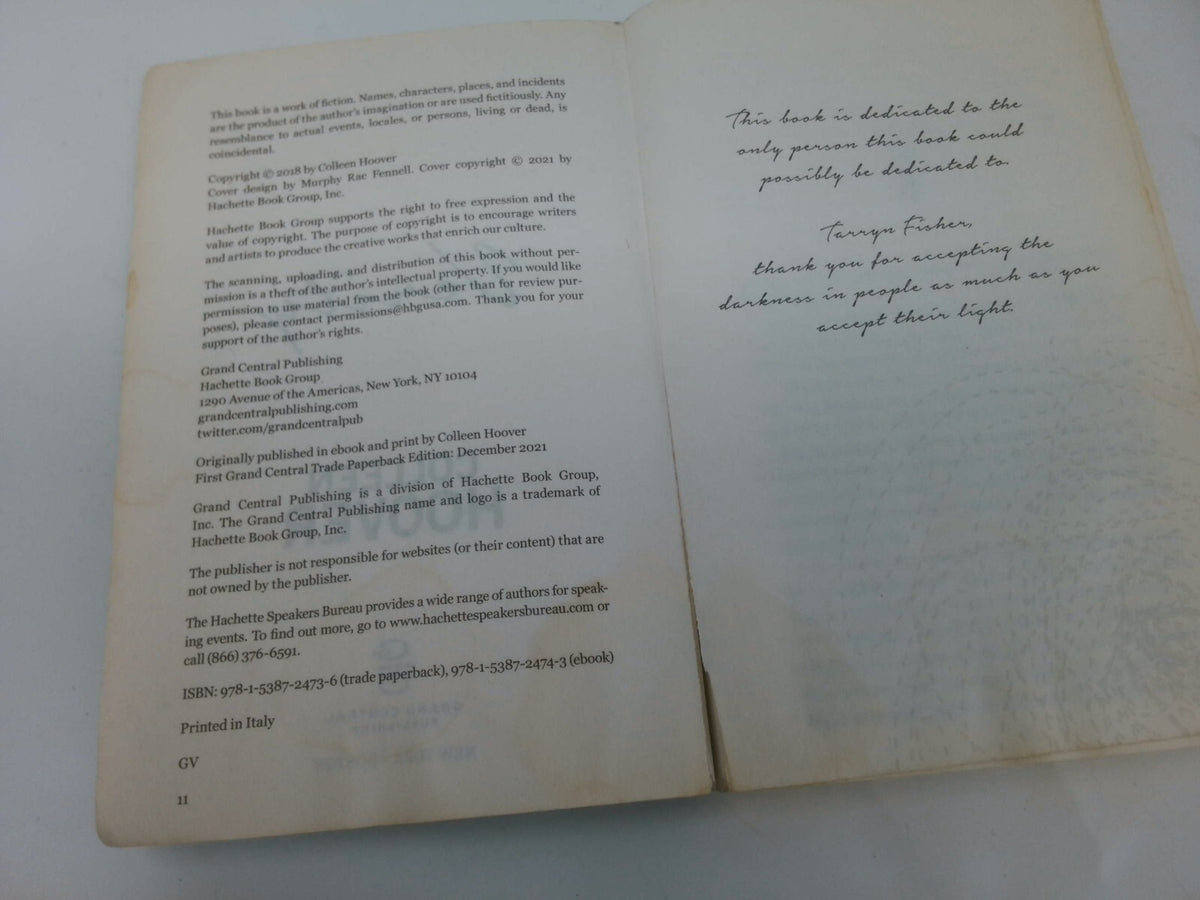 This book is a work of fiction. Names, characters, places, and incidents
are the product of the author's imagination or are used fictitiously. Any
resemblance to actual events, locales, or persons, living or dead, is
coincidental.
Copyright © 2018 by Colleen Hoover
Cover design by Murphy Rae Fennell. Cover copyright © 2021 by
Hachette Book Group, Inc.
Hachette Book Group supports the right to free expression and the
value of copyright. The purpose of copyright is to encourage writers
and artists to produce the creative works that enrich our culture.
The scanning, uploading, and distribution of this book without per-
mission is a theft of the author's intellectual property. If you would like
permission to use material from the book (other than for review pur-
poses), please contact permissions@hbgusa.com. Thank you for your
support of the author's rights.
Grand Central Publishing
Hachette Book Group
1290 Avenue of the Americas, New York, NY 10104
grandcentralpublishing.com
twitter.com/grandcentralpub
Originally published in ebook and print by Colleen Hoover
First Grand Central Trade Paperback Edition: December 2021
Grand Central Publishing is a division of Hachette Book Group,
Inc. The Grand Central Publishing name and logo is a trademark of
Hachette Book Group, Inc.
The publisher is not responsible for websites (or their content) that are
not owned by the publisher.
The Hachette Speakers Bureau provides a wide range of authors for speak-
ing events. To find out more, go to www.hachettespeakersbureau.com or
call (866) 376-6591.
ISBN: 978-1-5387-2473-6 (trade paperback), 978-1-5387-2474-3 (ebook)
Printed in Italy
GV
11
This book is dedicated to the
only person this book could
possibly be dedicated to.
Tarryn Fisher,
thank you for accepting the
darkness in people as much as you
accept their light.